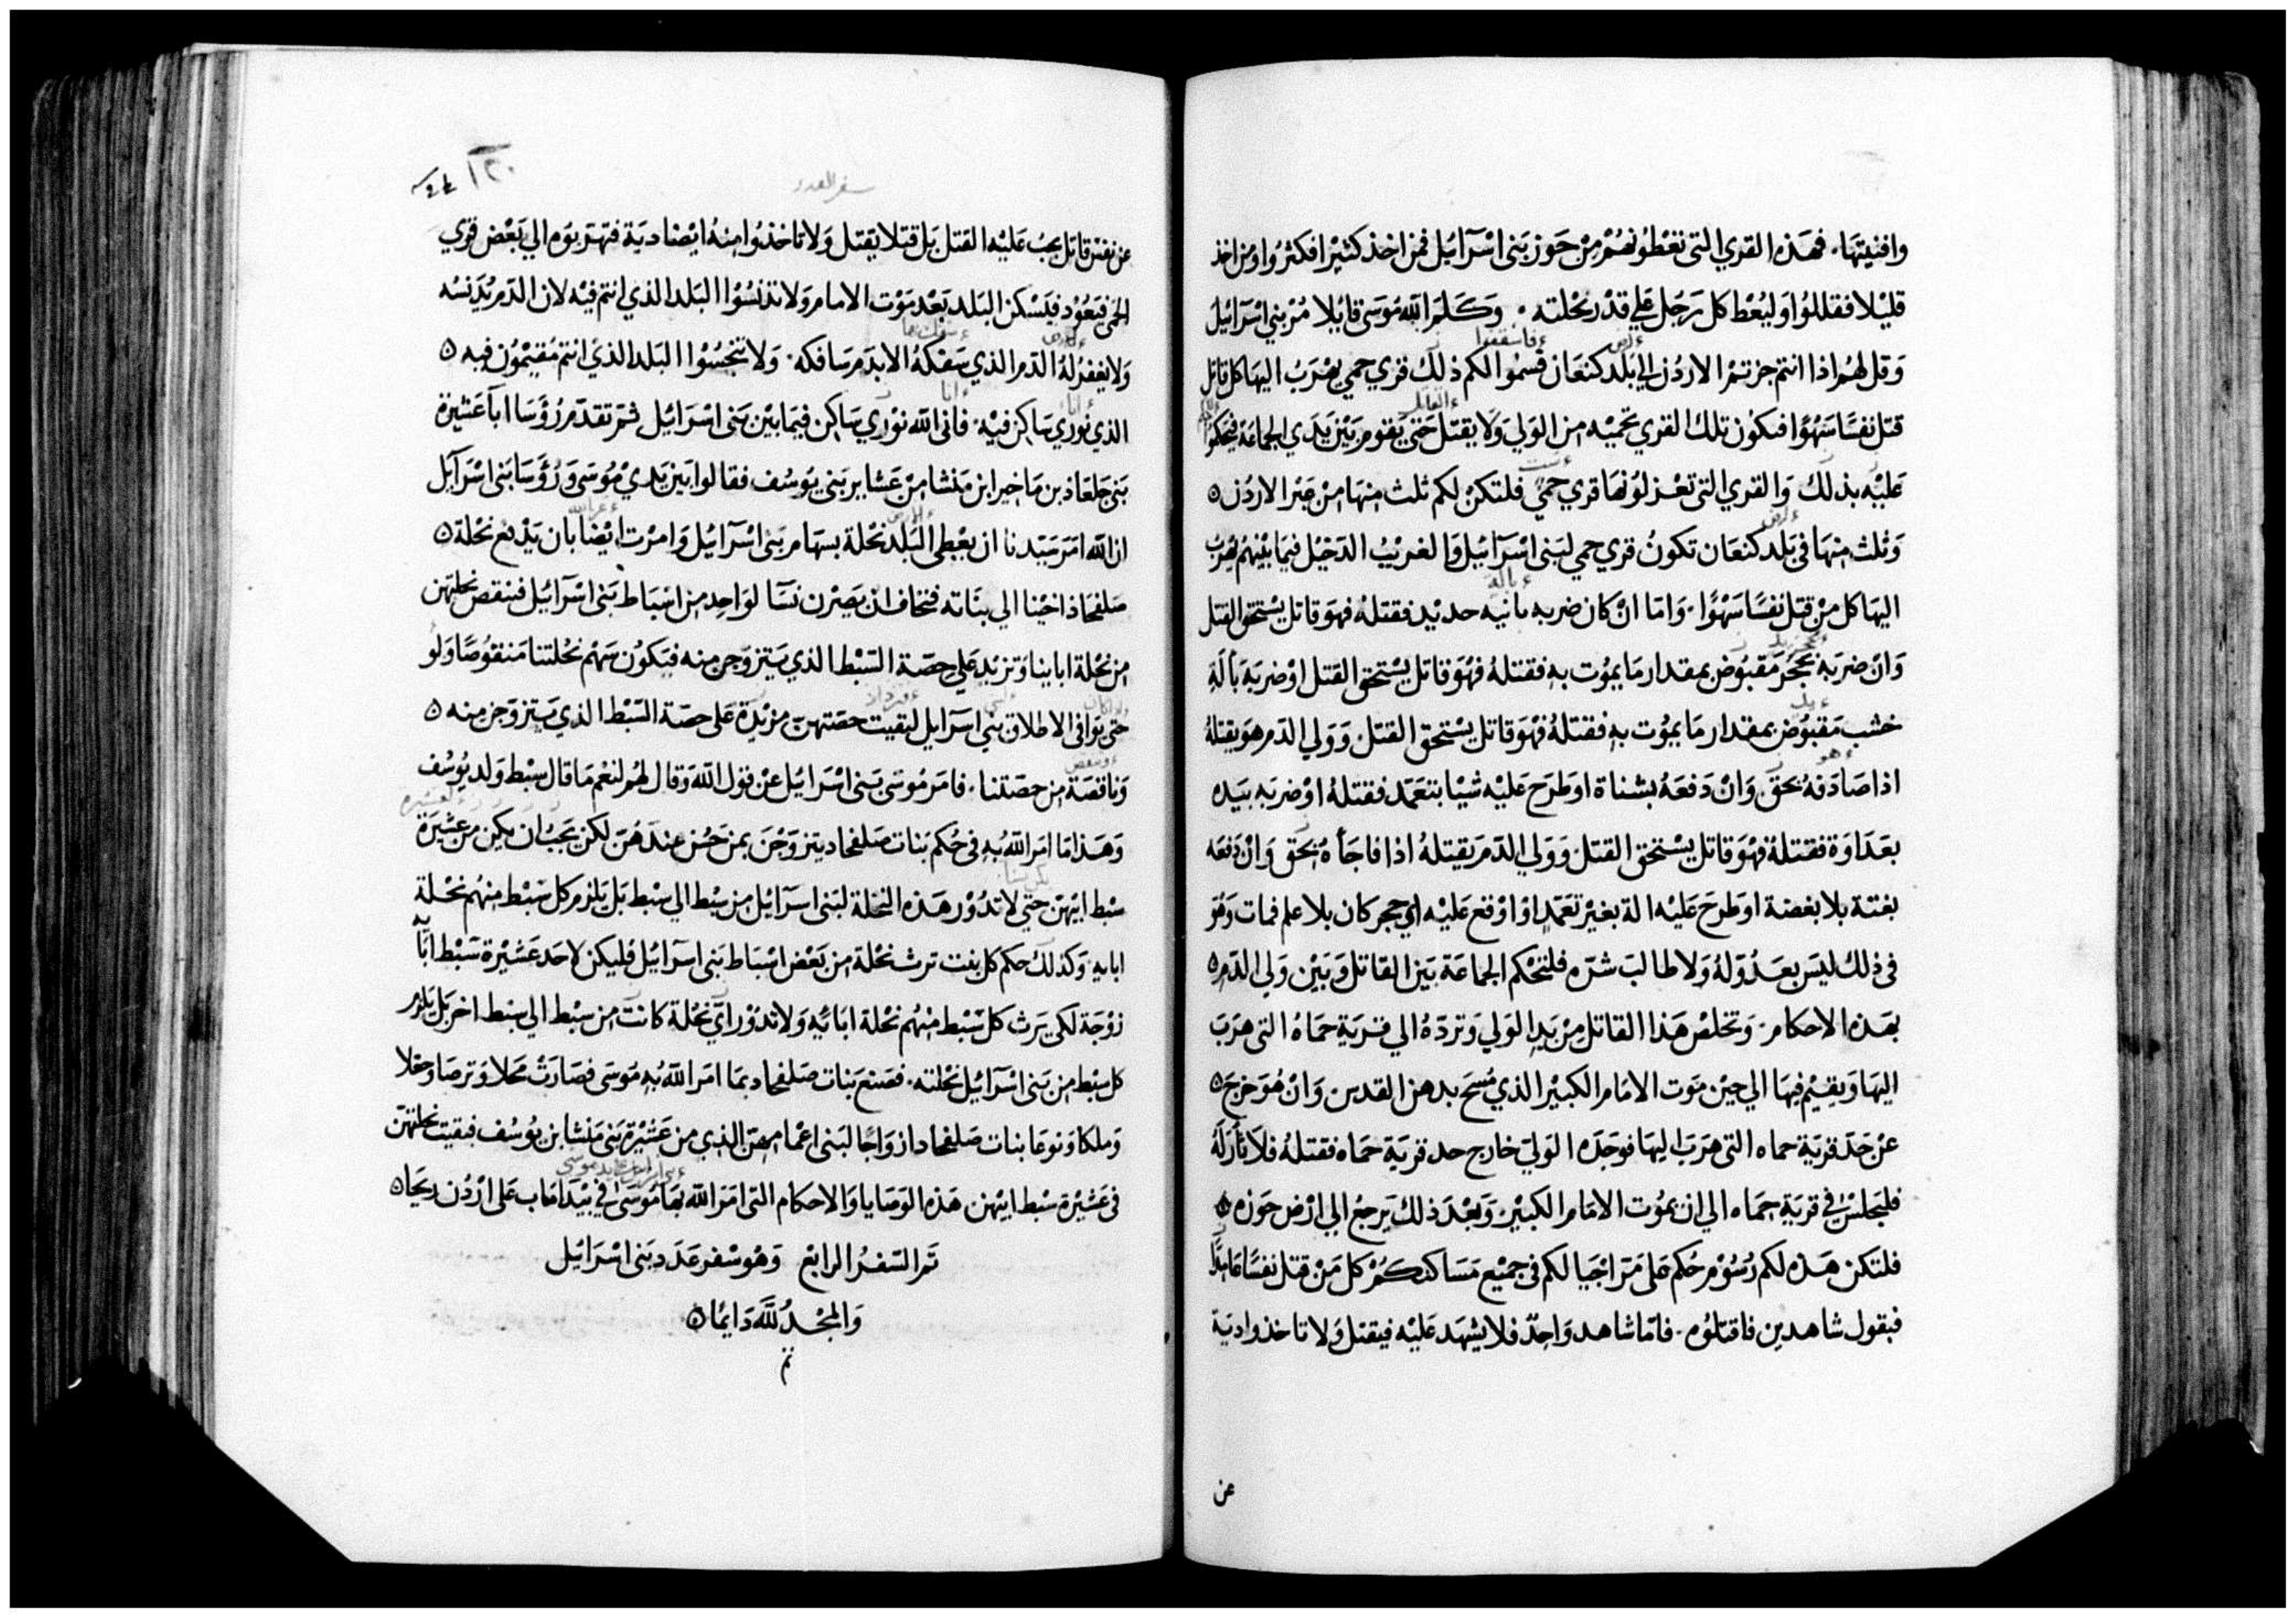 وافنيتها. فهذه القري التي تعْطونهُمْ مِنْ حَوز بَني اسْرَائيْل فمن اخذ كثيْرا فكثرُوا ومَن اخذ
قليْلا فقللوُا وَليُعْط كل رَجُل عَلي قدْر نحْلته. وَكَلمَ اللّه مُوسَى قايُلا مُرْ بني اسْرَائيْل
وَقل لهُمْ اذا انتم جزتمْ الاردُن الي بَلد كنعَان فسْموا لكم ذلك قري حمي يهْرَبُ اليهَا كل قاتل
قتل نفسًا سَهْوًا فتكوُن تلك القري تحميْه من الوَلي وَلا يقتلَ حَتي يقوم بَيْن يَدَي الجماعَة فيحكوا
عَليْه بذلك وَالقري التي تعْزلوُنهَا قري حمىً فلتكنْ لكم ثلث منهَا منْ عَبْر الاردُن ٥
وَثلث منهَا في بَلد كنعَان تكونُ قري حمي لبَني اسْرَائيْل وَالغريْبُ الدَخيْل فيمَا بيْنهمُ يهْرَبُ
اليهَا كل منْ قتل نفسًا سَهْوًا. وَامَا انْ كان ضربه بانيه حديْد فقتلهُ فهوَ قاتل يسْتحق القتل
وَانْ ضرَبه بحَجُر مَقبُوض بمقدار مَا يموُت به فقتلهُ فهْوَ قاتل يسْتحق القتل اوْ ضرَبَه بآلَةِ
خشب مَقبُوض بمقدار مَا يموُت به فقتلهُ فهْوَ قاتل يسْتحق القتل. وَوَلي الدَم هوَ يقتلهُ
اذا صَادَفهُ بحَق. وَانْ دَفعَهُ بشناة اوطَرَح عَليْه شيْا بتعَمد فقتلهُ اوْ ضرَبه بيَده
بعَدَاوَة فقتلهُ فهْوَ قاتل يسْتحق القتل. وَوَلي الدَم يَقيتلهُ اذا فاجَأهُ بحَق وَانْ دَفعَه
بغتة بلا بغضة اوطَرحَ عَليْه الة بغيْر تعَمّدٍ اوْ اوْقع عَليْه اي حجر كان بلا علم فمات وَهوَ
في ذلك ليسَ بعَدُوّ لهُ وَلا طالبَ شرّه فلتحْكم الجماعَة بَين القاتل وَبَيْن وَلي الدَم ٥
بهَذه الاحكام. وَتخلصْ هَذا القاتل مِنْ يَدِ الوَلي وَتردّهُ الي قرَيَة حمَاهُ التي هرَبَ
اليهَا وَيقيْم فيهَا الي حيْن مَوت الامَام الكبيْر الذي مُسحَ بدهن القدس وَانْ هُوَ خرجَ ٥
عنْ حَدّ قريَة حماه التي هرَبَ اليهَا فوَجَدَه الوَلي خارج حد قريَة حمَاه فقتلهُ فلا ثأرَ لهُ
فليَجلسْ في قريَة حِمَاه الي ان يموُت الامَام الكبيْر. وَبَعْدَ ذلك يَرجع الي ارْض حَوزه
فلتكن هَذه لكم رُسُوْم حُكم عَلي مَرّ اجْيالكم في جميْع مَسَاكنكُمْ كل مَنْ قتل نفسًا عَامِدًا
فبقول شاهدين فاقتلوُه. فامّا شاهد وَاحِدٌ فلا يشهَد عَليْه فيقتل وَلا تاخذوا ديَة
عن
سفر العدد
١٢٠
عن نفس قاتل يجبُ عَليْه القتل بَل قتلا يَقتل وَلا تاخذوُا مِنهُ ايْضا ديَة فتهرّبوُه الي بَعْض قري
الحمَى فيَعُوْد فيَسْكن البَلد بَعْد مَوْت الامام وَلا تدنسُوْا البَلد الذي انتم فيْه لان الدَم يُدَنسُه
وَلا يغفرُ لهُ الدَم الذي سَفكهُ الا بدَم سَافكه. وَلا تنجسُوْا البَلد الذي انتم مُقيْموُن فيه ٥
الذي نوُري سَاكن فيْه. فاني اللّه نوْري سَاكن فيمَا بيْن بَني اسْرَائيْل ثمّ تقدّم رُؤَسَا ابَآ عَشيرة
بَني جَلعَاذ بن مَاخير ابن مَنشا منْ عَشاير بَني يوَسُف فقالوا بَين يَدي مُوسَى وَرُؤسَا بَني اسْرَآيل
ان اللّه امَرَ سَيّدنا ان يعْطى البَلد نحْلة بسهَام بَني اسْرَآئيْل وَامرْت ايْضا بان يَدْفع نحْلة ٥
صَلفحَاذ اخيْنا الي بنَاته فنخاف ان يَصرْن نسَآ لوَاحِد من اسْبَاط بَني اسْرَآئيْل فتنقص نحلتهَن
من نحْلة ابَاينا وَتزيْد عَلي حصَة السَبْط الذي سَيَتزوّجن منه فيَكوُن سَهْم نحْلتنا مَنقوُصًا وَلوْ
حتي يوَافي الاطلاق بَني اسرَآيل لبَقيت حصَتهنّ مَزيْدَة عَلي حصَة السّبْط الذي سَيَتزوّجن منه ٥
وَناقصَة من حصَتنا. فامَر مُوسَى بَني اسْرَائيْل عَنْ قوْل اللّه وَقال لهُم لنعْم مَا قال سِبْط وَلد يوُسُف
وَهَذا مَا امَر اللّهُ به في حُكم بَنات صَلفحاد يتزوّجْنَ بمن حَسُن عندَهُنّ لكن يَجبُ ان يكن من عَشيرَة
سبْط ابيْهن حتي لا تدُوْر هَذه النحْلة لبَني اسرَآئيْل من سبْط الي سْبط بَل يَلزم كل سَبْط منهُم نحْلة
ابايه. وَكذلك حكم كل بنت ترث نحْلة من بَعْض اسْبَاط بَني اسرَآئيْل فليكن لاحَد عَشيْرة سَبْط ابَآ
زوْجَة لكي يَرث كل سَبْط منهُم نحْلة ابَائيه وَلا تدُوْر ايّ نحْلة كانت من سبْط الي سْبط اخر بَل يَلزم
كل سِبْط من بَني اسْرَآئيْل نحْلته. فصَنعَ بَنات صَلفحاد بمَا امَر اللّهُ به مَوسَى فصَارَتْ مَحلا وَترصَا وحقلا
وَملكا وَنوعَا بنات صَلفحاد ازوَاجًا لبَني اعْمامهن الذي من عَشيْرَة بَني مَنشا بن يوُسُف فبقيت نحلتهنّ
في عَشيْرة سْبط ابيْهن. هَذه الوَصَايا وَالاحكام التي امَرَ اللّه بهَا مُوسَى في بيْدَا مَاب عَلى ارْدُن ريحَا ٥
تَم السّفرُ الرابع وَهوَ سْفر عَدَد بَني اسْرَائيْل
وَالمجْدُ للّه دَايمًا ٥
تم